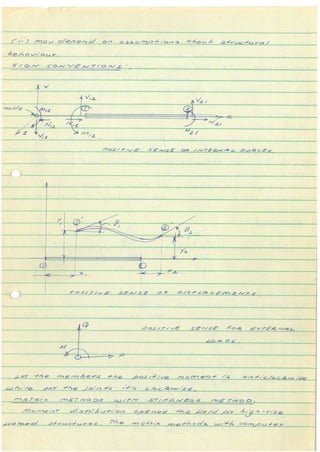 (ii) may depend on assumptions about structural
behaviour.
SIGN CONVENTIONS:
Y
V12 V21
node M12 1 2 X
N12 N21
FZ V12 M12 M21
POSITIVE SENSE OF INTERNAL FORCES.
Y1 1' θ1 2' θ2
Y2
1 2
X1 X2
POSITIVE SENSE OF DISPLACEMENTS.
Q POSITIVE SENSE FOR EXTERNAL
LOADS.
M P
For the members the positive moment is anticlockwise
while for the joints it's clockwise.
MATRIX METHODS WITH STIFFNESS METHOD.
Moment distribution opened the field for high-rise
framed structures. The matrix methods with computer